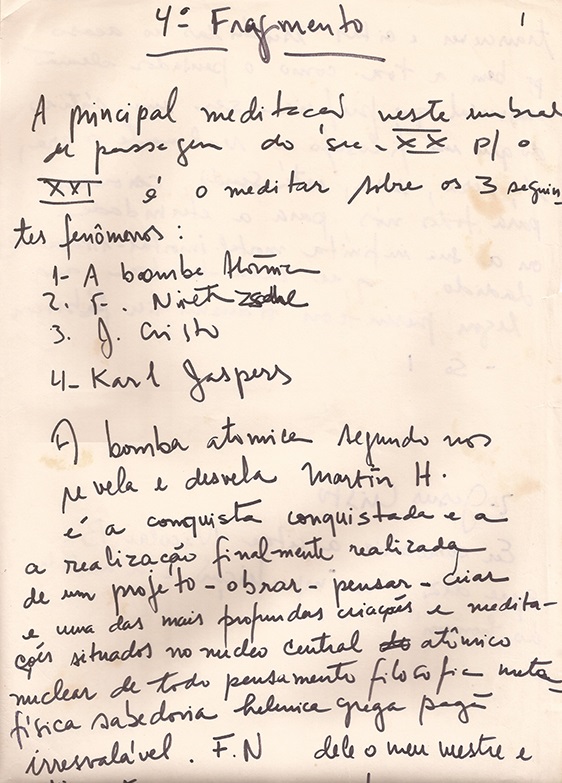 4º Fragmento
A principal meditação neste umbral
de passagem do séc. XX p/ o
XXI é o meditar sobre os 3 seguin
tes fenômenos:
1- A bomba Atômica
2. F. Nietzsche
3. J. Cristo
4- Karl Jaspers
A bomba atomica segundo nos
revela e desvela Martin H.
é a conquista conquistada e a
a realização final-mente realizada
de um projeto-obrar-pensar-criar
e uma das mais profundas criações e medita-
ções situados no nucleo central atômico
nuclear de todo pensamento filosofia meta
física sabedoria helenica grega pagã
irresvalável. F.N dele o meu mestre e